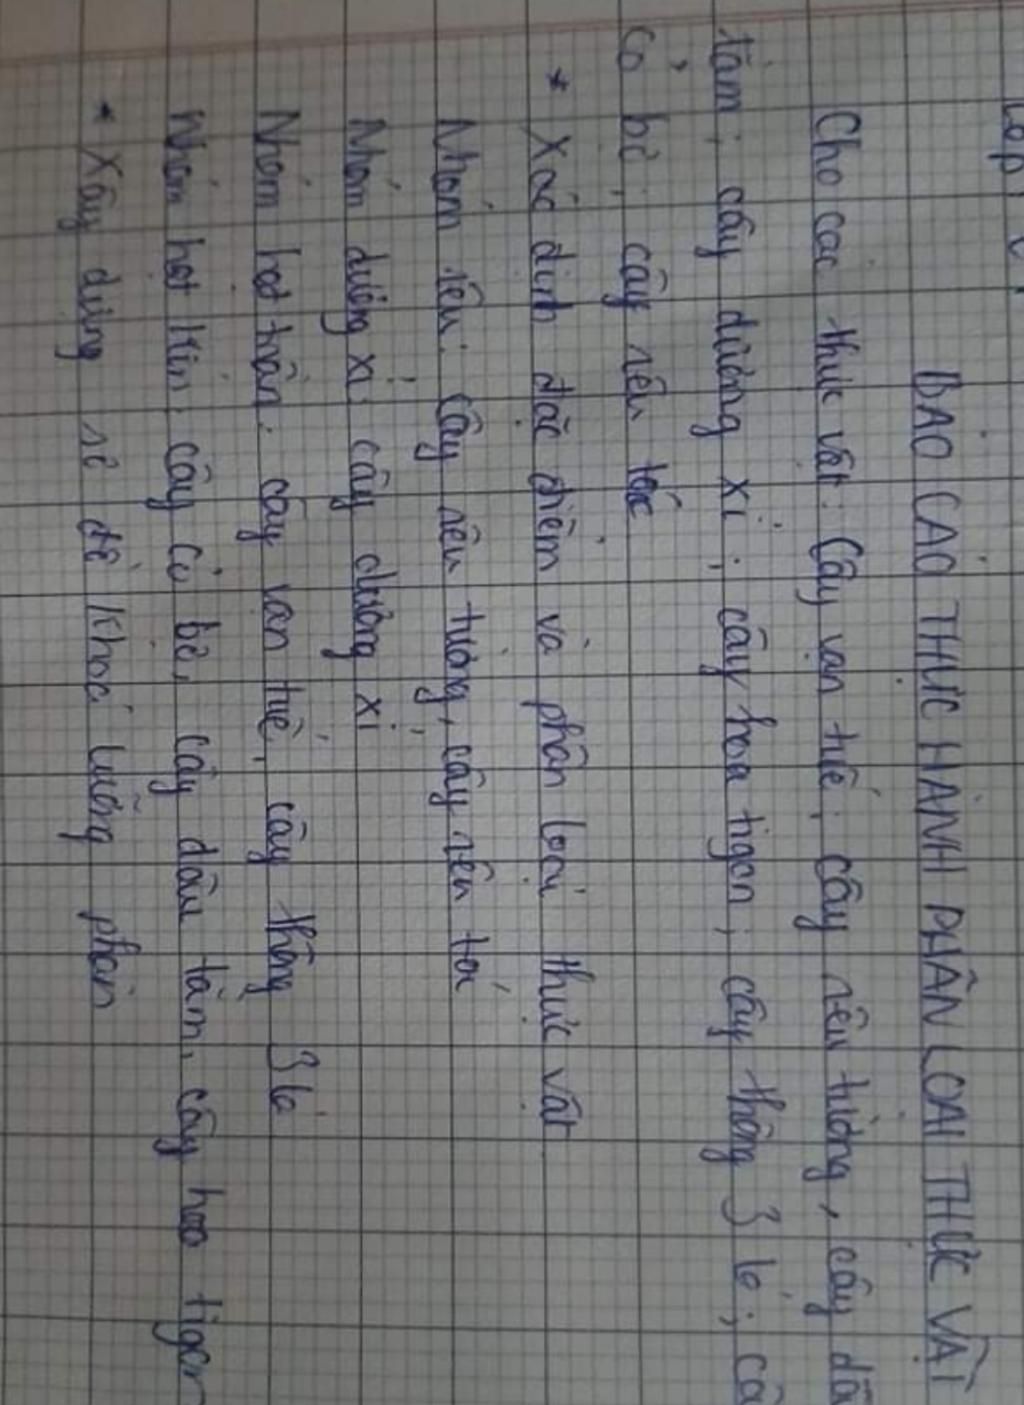 Lớp:
BÁO CÁO THỰC HÀNH PHÂN LOẠI THỰC VẬT
Cho các thực vật: Cây vạn tuế; cây rêu tường, cây dâ
tằm; cây dương xỉ; cây hoa tigon; cây thông 3 lá; câ
cỏ bi; cây rêu tóc
* Xác định đặc điểm và phân loại thực vật
Nhóm rêu: Cây rêu tường, cây rêu tóc
Nhóm dương xỉ: cây dương xỉ
Nhóm hạt trần: cây vạn tuế, cây thông 3 lá
Nhóm hạt kín: cây cỏ bi, cây dâu tằm, cây hoa tigon
* Xây dựng sơ đồ khoá lưỡng phân